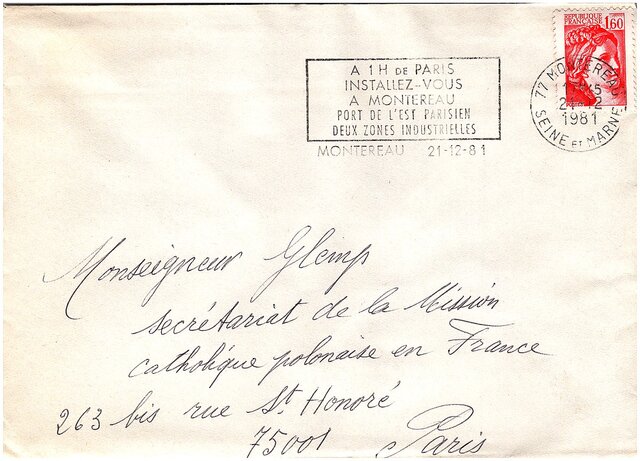 REPUBLIQUE
FRANÇAISE 1,60
A 1H DE PARIS
INSTALLEZ-VOUS
A MONTEREAU
PORT DE L'EST PARISIEN
DEUX ZONES INDUSTRIELLES
MONTEREAU 21-12-81
77 MONTEREAU
21-12
1981
SEINE ET MARNE
Monseigneur Glemp
secrétariat de la Mission
catholique polonaise en France
263 bis rue St Honoré
75001 Paris